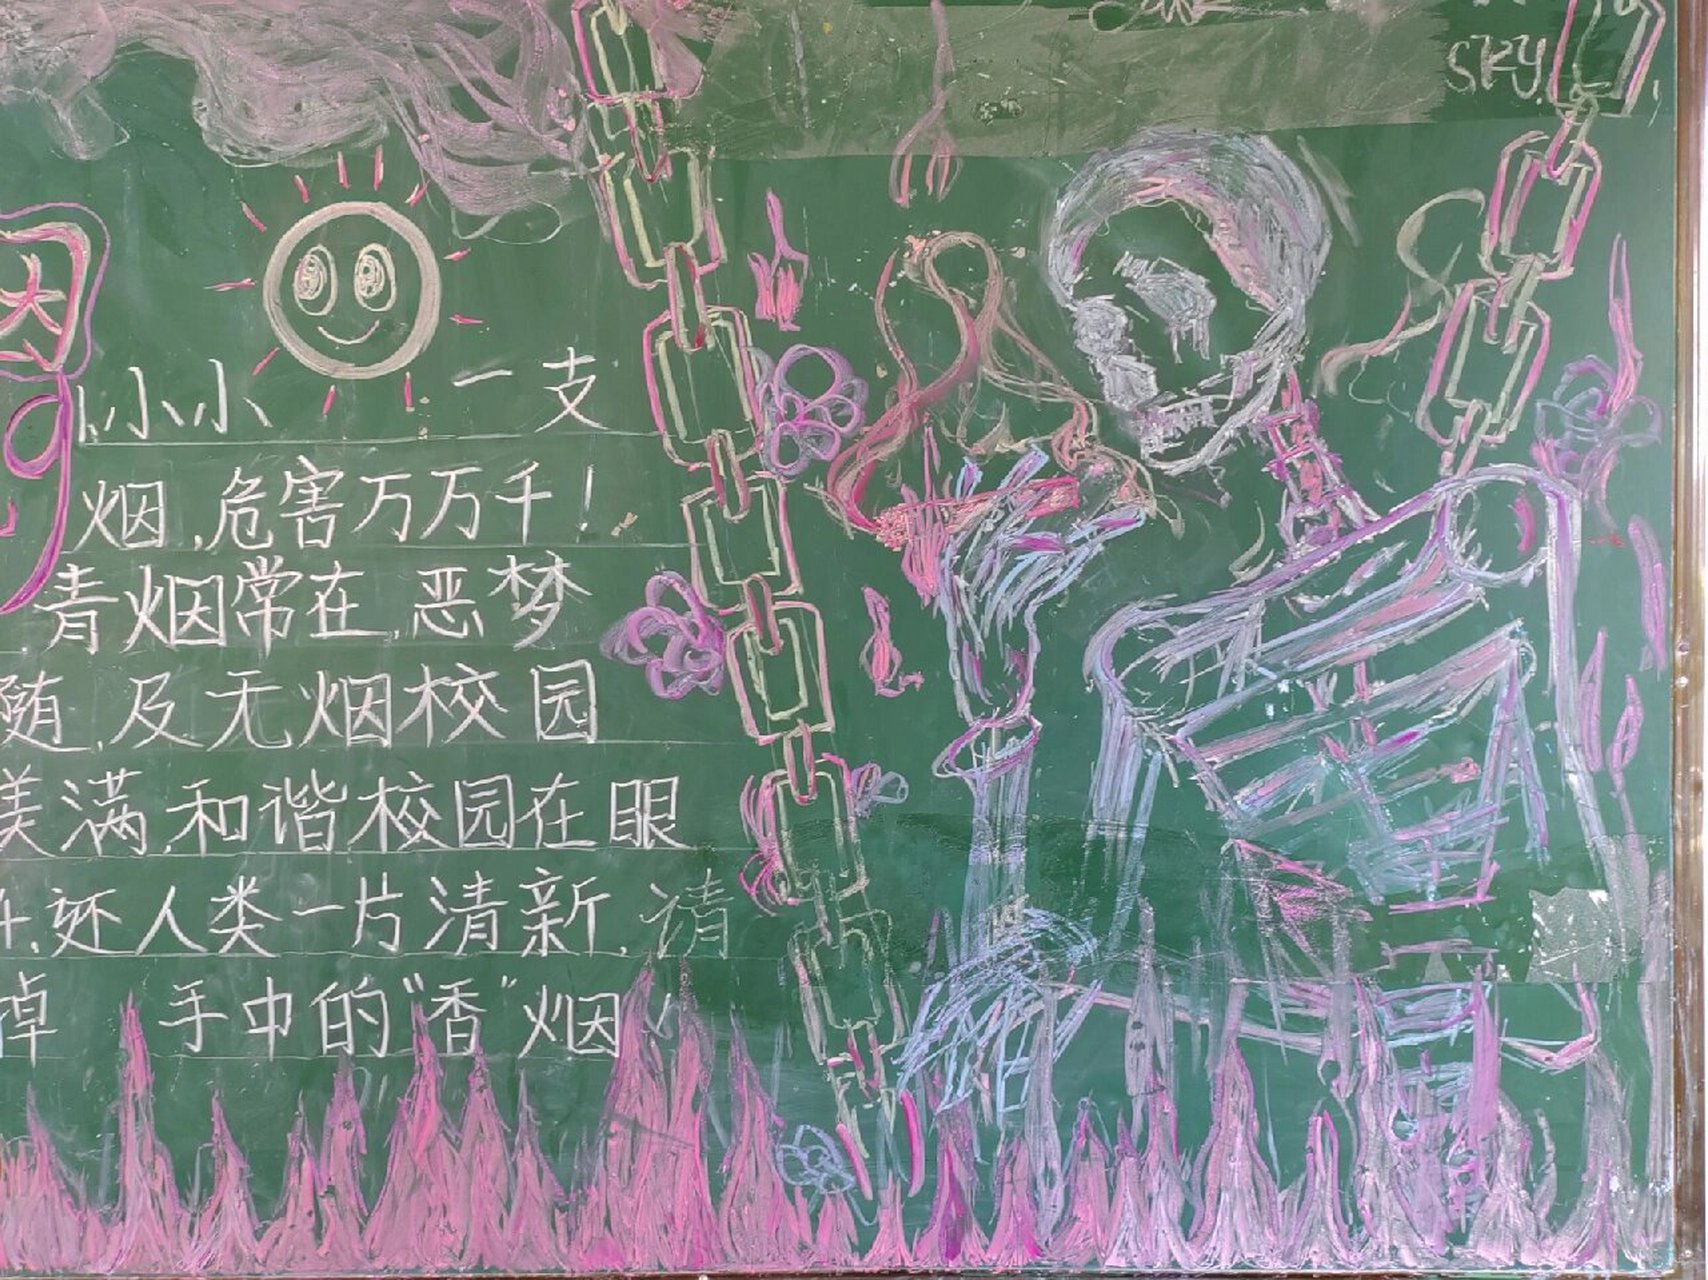 SKY.
小小 一支
烟,危害万万千!
青烟常在,恶梦
随,及无烟校园
美满,和谐校园在眼
还人类一片清新,请
掉 手中的“香”烟